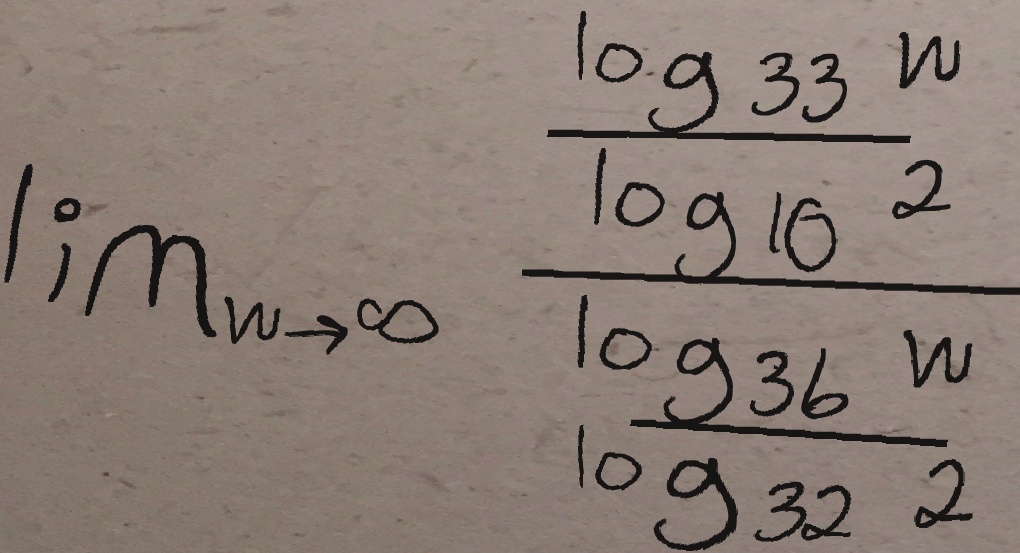 lim w→∞
log 33 w
log 10 2
log 36 w
log 32 2